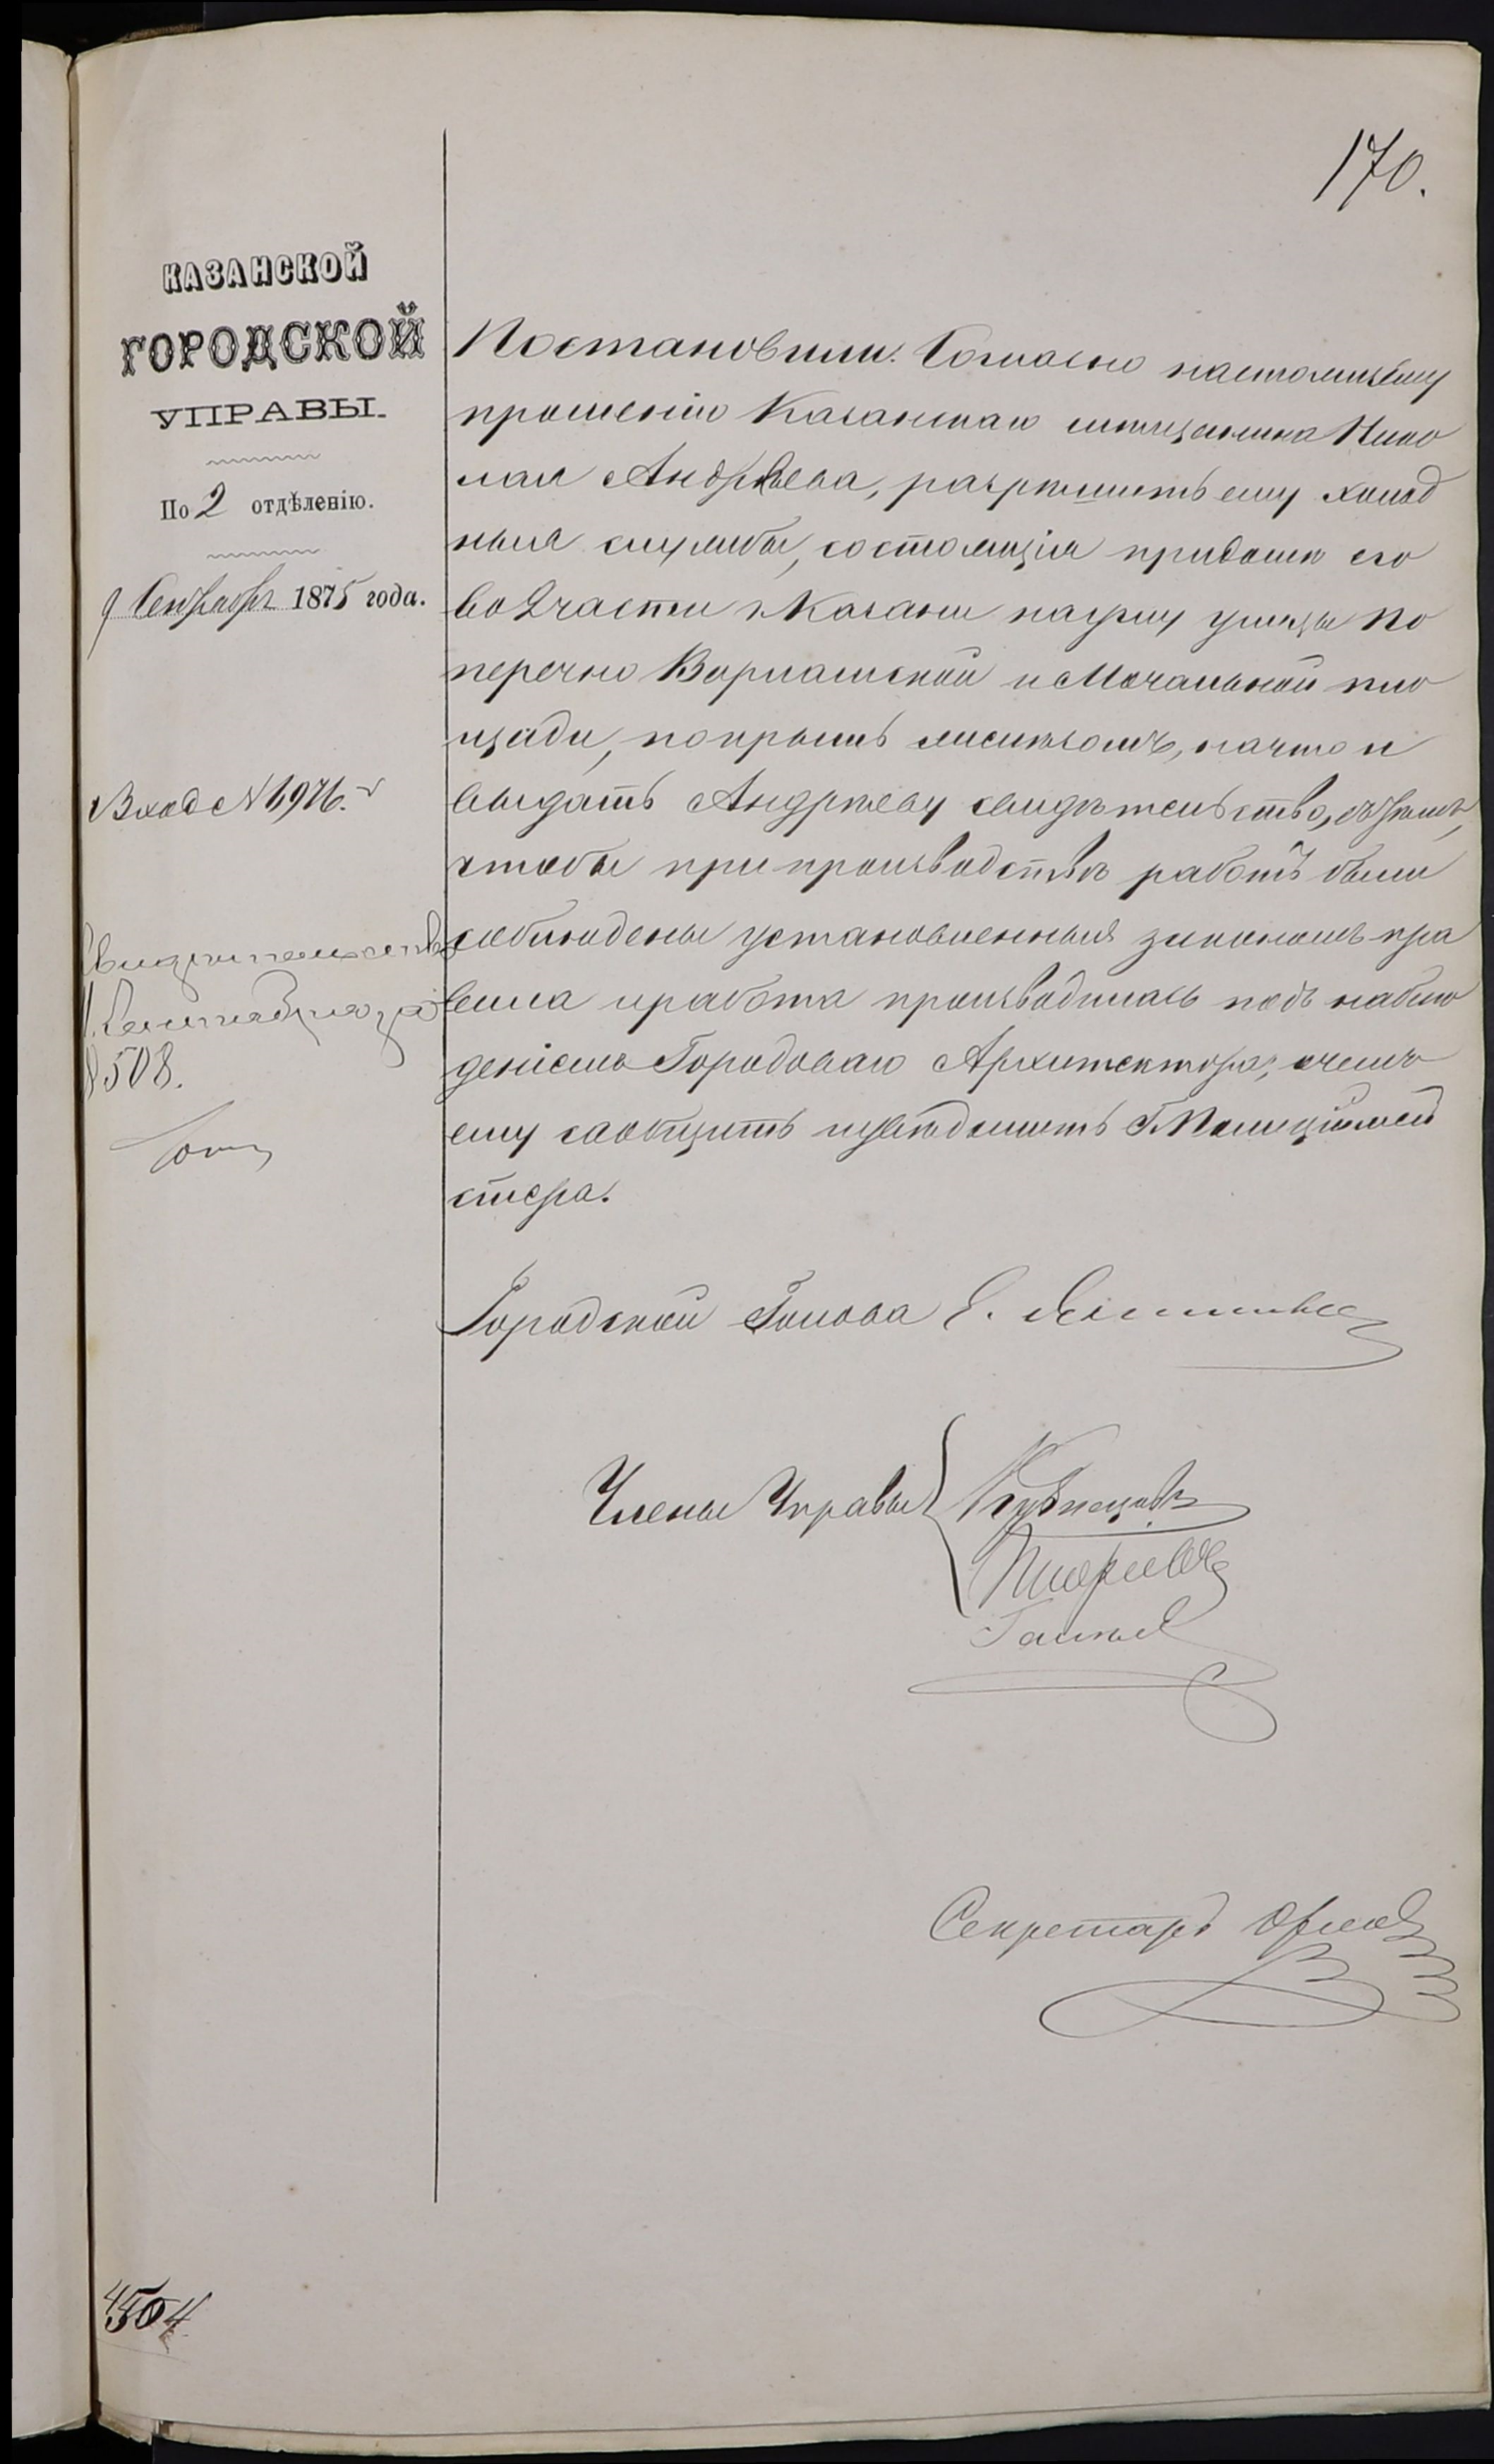 170.
КАЗАНСКОЙ
ГОРОДСКОЙ
УПРАВЫ.
По 2 отдѣленію.
9 Сентября 1875 года.
Вход № 4976.
Свидѣтельство
11 Сентября за
№ 508.
Постановили: Согласно настоящему
прошенію Казанскаго мѣщанина Нико
лая Андрѣева, разрѣшить ему холод
ныя службы, состоящія придомѣ его
во 2 части г. Казани науглу улицы По
перечно Варламской и Мочальной пло
щади, покрыть желѣзомъ, начто и
выдать Андрѣеву свидѣтельство, стѣмъ,
чтобы припроизводствѣ работъ были
соблюдены установленныя закономъ пра
вила иработа производилась подъ наблю
деніемъ Городоваго Архитектора; очемъ
ему сообщить иувѣдомить Г. Полиціймей
стера.
Городской Голова Е.
Члены Управы
Кузнецовъ
Секретарь Орлов
4504